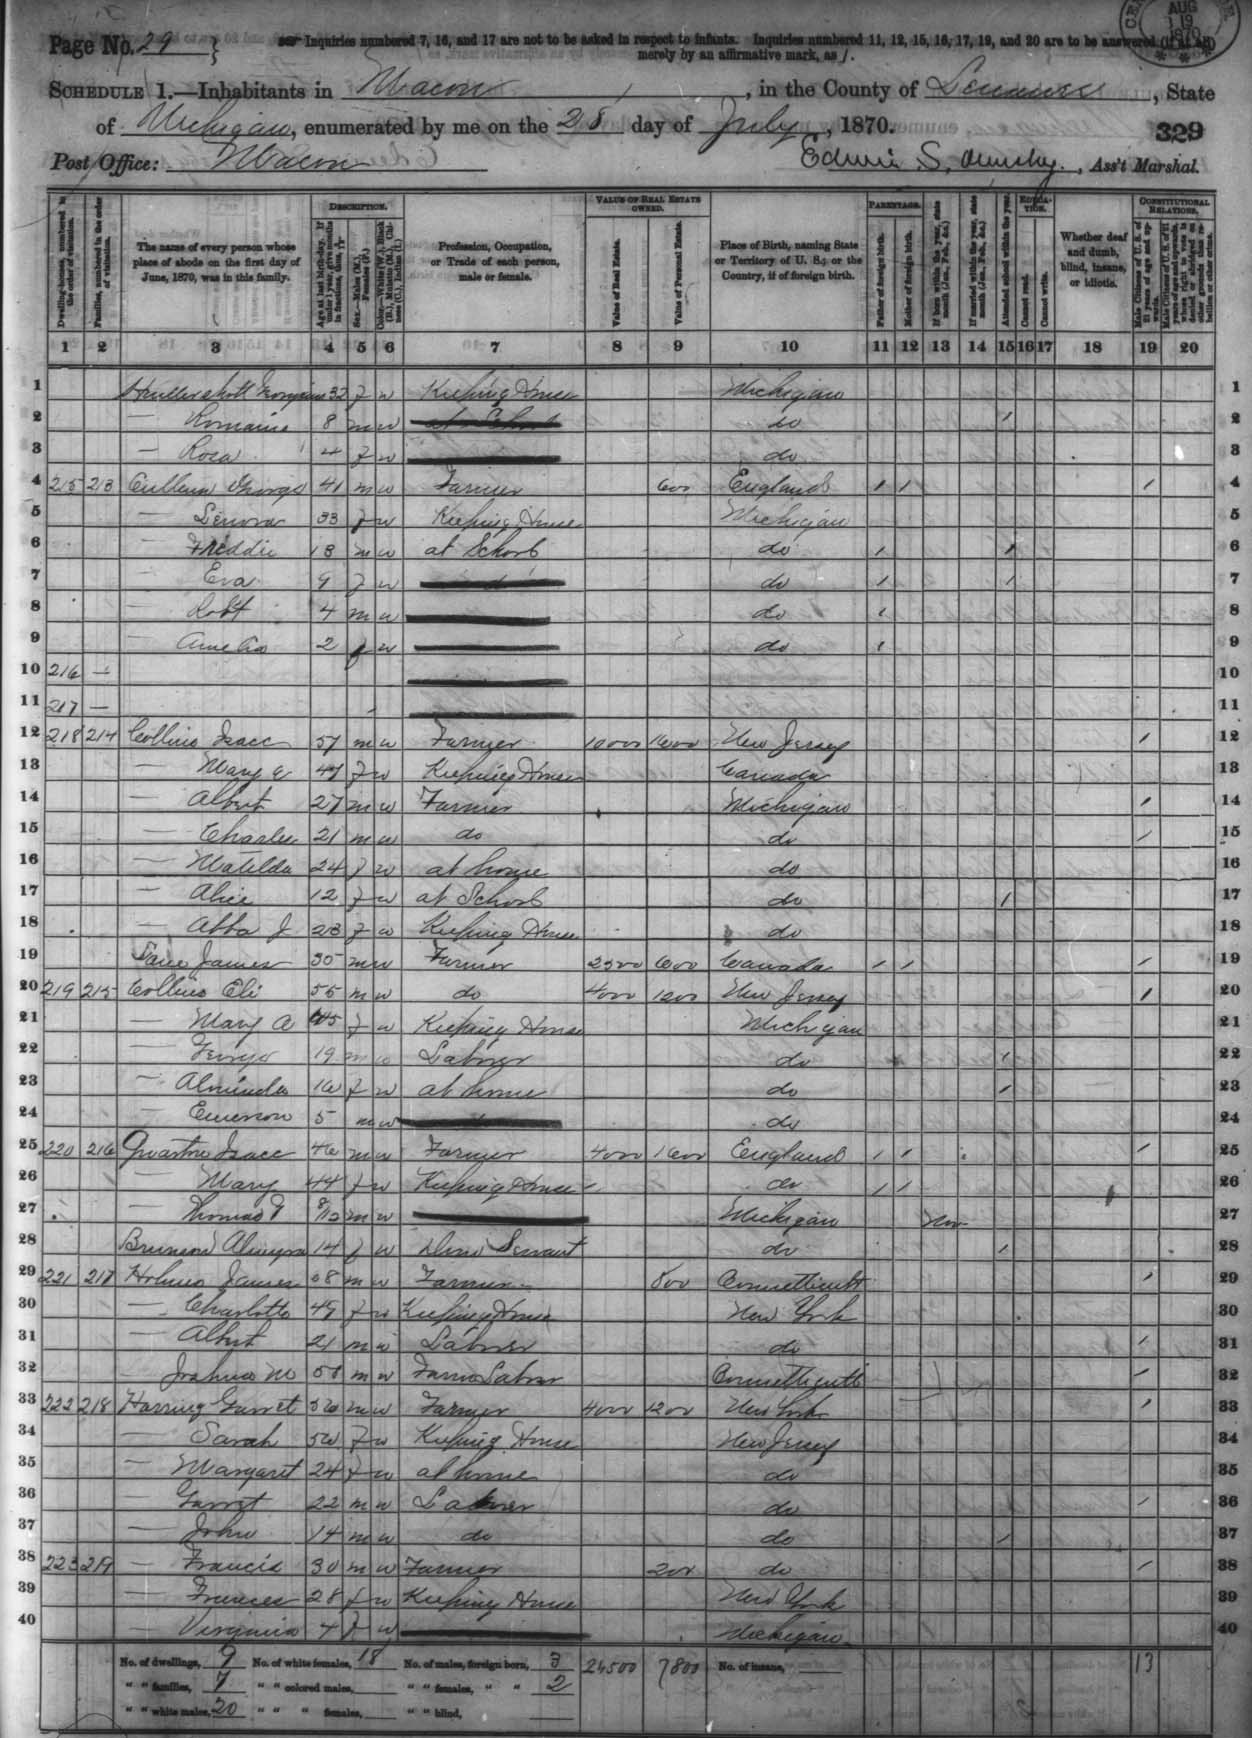 Page No. 29
Inquiries numbered 7, 16, and 17 are not to be asked in respect to infants. Inquiries numbered 11, 12, 15, 16, 17, 19, and 20 are to be answered (if at all)
merely by an affirmative mark, as /.
AUG 19 1870
SCHEDULE 1.—Inhabitants in Macon, in the County of Lenawee, State
of Michigan, enumerated by me on the 28 day of July, 1870.
329
Post Office: Macon
Edwin S. Ormsby, Ass't Marshal.
Dwelling-houses, numbered in the order of visitation.
Families, numbered in the order of visitation.
The name of every person whose place of abode on the first day of June, 1870, was in this family.
DESCRIPTION.
Age at last birth-day. If under 1 year, give months in fractions, thus, 3/12
Sex.—Males (M.), Females (F.)
Color.—White (W.), Black (B.), Mulatto (M.), Chinese (C.), Indian (I.)
Profession, Occupation, or Trade of each person, male or female.
VALUE OF REAL ESTATE OWNED.
Value of Real Estate.
Value of Personal Estate.
Place of Birth, naming State or Territory of U. S.; or the Country, if of foreign birth.
PARENTAGE.
Father of foreign birth.
Mother of foreign birth.
If born within the year, state month (Jan., Feb., &c.)
If married within the year, state month (Jan., Feb., &c.)
EDUCATION.
Attended school within the year.
Cannot read.
Cannot write.
Whether deaf and dumb, blind, insane, or idiotic.
CONSTITUTIONAL RELATIONS.
Male Citizens of U. S. of 21 years of age and upwards.
Male Citizens of U. S. of 21 years of age and upwards, whose right to vote is denied or abridged on other grounds than rebellion or other crime.
1 2 3 4 5 6 7 8 9 10 11 12 13 14 15 16 17 18 19 20
1 32 f w Keeping House Michigan 1
2 — Romaine 8 m w at School do / 2
3 — Rosa 4 f w do 3
4 215 213 Cullum George 41 m w Farmer 600 England / / / 4
5 — Lenora 33 f w Keeping House Michigan 5
6 — Freddie 13 m w at School do / / 6
7 — Eva 9 f w do / / 7
8 — Robt 4 m w do / 8
9 — Amelia 2 f w do / 9
10 216 — 10
11 217 — 11
12 218 214 Collins Isaac 57 m w Farmer 10000 1600 New Jersey / 12
13 — Mary E 47 f w Keeping House Canada 13
14 — Albert 27 m w Farmer Michigan / 14
15 — Charles 21 m w do do / 15
16 — Matilda 24 f w at home do 16
17 — Alice 12 f w at School do / 17
18 — Abba J 23 f w Keeping House do 18
19 James 35 m w Farmer 2500 600 Canada / / / 19
20 219 215 Collins Eli 55 m w do 4000 1200 New Jersey / 20
21 — Mary A 45 f w Keeping House Michigan 21
22 — George 19 m w Laborer do / 22
23 — Alminda 16 f w at home do / 23
24 — Emerson 5 m w do 24
25 220 216 Isaac 46 m w Farmer 4000 1600 England / / / 25
26 — Mary 44 f w Keeping House do / / 26
27 — Thomas 8/12 m w Michigan Nov 27
28 Almyra 14 f w Dom Servant do / 28
29 221 217 Holmes James 68 m w Farmer 800 Connecticutt / 29
30 — Charlotte 49 f w Keeping House New York 30
31 — Albert 21 m w Laborer do / 31
32 — Joshua M 58 m w Farm Labor Connetticutt / 32
33 222 218 Harring Garret 56 m w Farmer 4000 1200 New York / 33
34 — Sarah 50 f w Keeping House New Jersey 34
35 — Margaret 24 f w at home do 35
36 — Garret 22 m w Laborer do / 36
37 — John 14 m w do do / 37
38 223 219 — Francis 30 m w Farmer 200 do / 38
39 — Frances 28 f w Keeping House New York 39
40 — Virginia 4 f w Michigan 40
No. of dwellings, 9 No. of white females, 18 No. of males, foreign born, 3 24500 7800 No. of insane, 13
" " families, 7 " " colored males, " " females, " " 2
" " white males, 20 " " " females, " " blind,